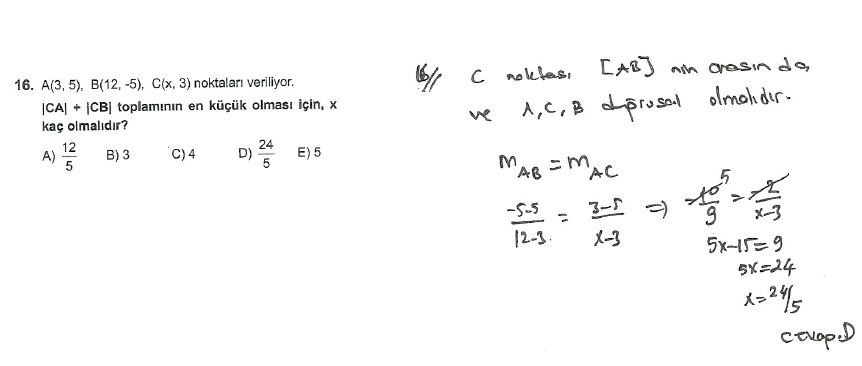 16. A(3, 5), B(12, -5), C(x, 3) noktaları veriliyor.
|CA| + |CB| toplamının en küçük olması için, x
kaç olmalıdır?
A) 12/5 B) 3 C) 4 D) 24/5 E) 5
16// C noktası [AB] nin arasında,
ve A, C, B doğrusal olmalıdır.
m_AB = m_AC
-5-5/12-3 = 3-5/x-3 => -10/9 5 = -2/x-3
5x-15=9
5x=24
x=24/5
cevap.D